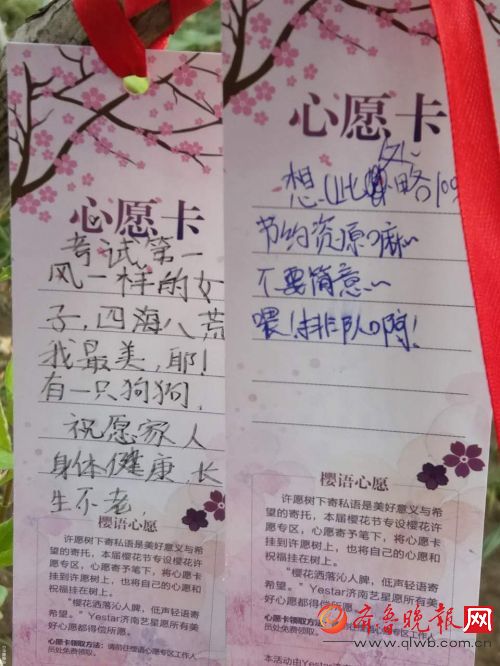 心愿卡
考试第一
风一样的女
子,四海八荒
我最美,耶!
有一只狗狗.
祝愿家人
身体健康,长
生不老,
樱语心愿
许愿树下寄私语是美好意义与希
望的寄托,本届樱花节专设樱花许
愿专区,心愿寄予笔下,将心愿卡
挂到许愿树上,也将自己的心愿和
祝福挂在树上。
“樱花洒落沁人脾,低声轻语寄
希望。”Yestar济南艺星愿所有美
好心愿都得偿所愿。
心愿卡领取方法:请前往樱语心愿专区工作人
员处免费领取。
心愿卡
想
略
节约资源嘛~
不要简意~
喂!排队啊!
樱语心愿
许愿树下寄私语是美好意义与
的寄托,本届樱花节专设樱花
愿专区,心愿寄予笔下,将心愿
挂到许愿树上,也将自己的心愿
祝福挂在树上。
“樱花洒落沁人脾,低声轻语
希望。”Yestar济南艺星愿所有
好心愿都得偿所愿。
心愿卡领取方法:
员处免费领取。
本活动由Yest
齐鲁晚报网
www.qlwb.com.cn